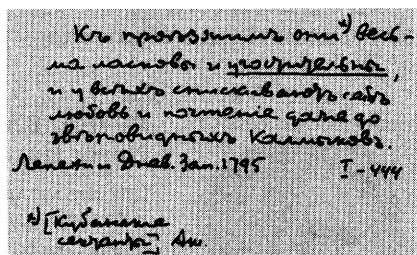 Къ проѣзжимъ они *) весь-
ма ласковы и угостительны,
и у всѣхъ снискиваютъ себѣ
любовь и почтение даже до
звѣровидныхъ Калмыковъ.
Лепехин Днев. Зап. 1795 I-444
*) [Кубанские
] Ак.